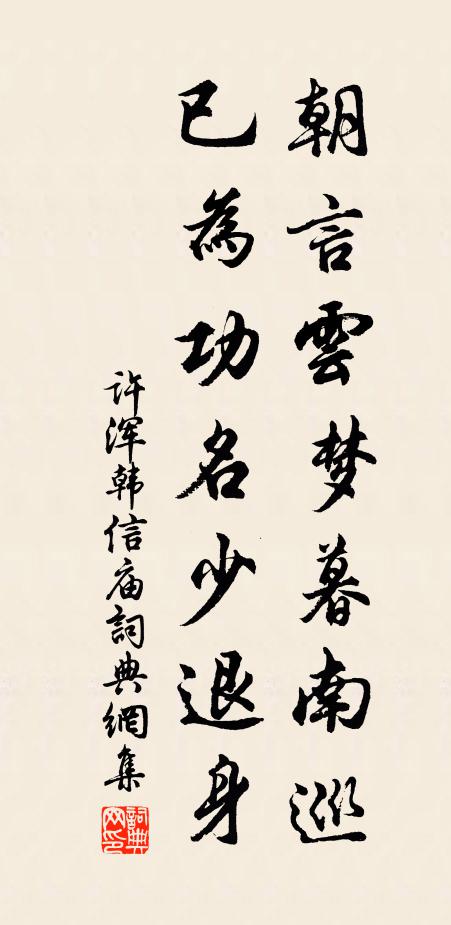 朝言雲梦暮南巡
已為功名少退身
许浑韩信庙詞典網集
詞典网印